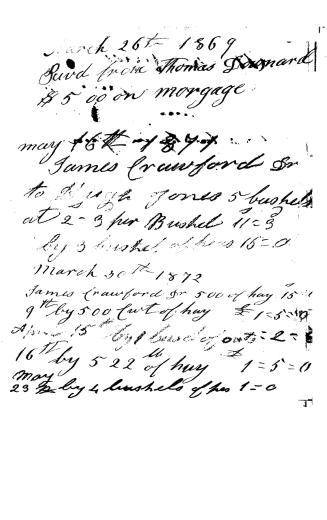 March 26th 1869
Recvd from Thomas Downard
$5 00 on morgage
may
James Crawford Dr
to Hugh Jones 5 bushels
at 2=3 per Bushel 11=3
by 3 bushel of 15=0
March 30th 1872
James Crawford Dr 500 of hay 15=
9th by 500 Cwt of hay 1=5=
15th by 1 of =2=
16th by 5 22 lb of hay 1=5=0
May
23 by 4 bushels of 1=0